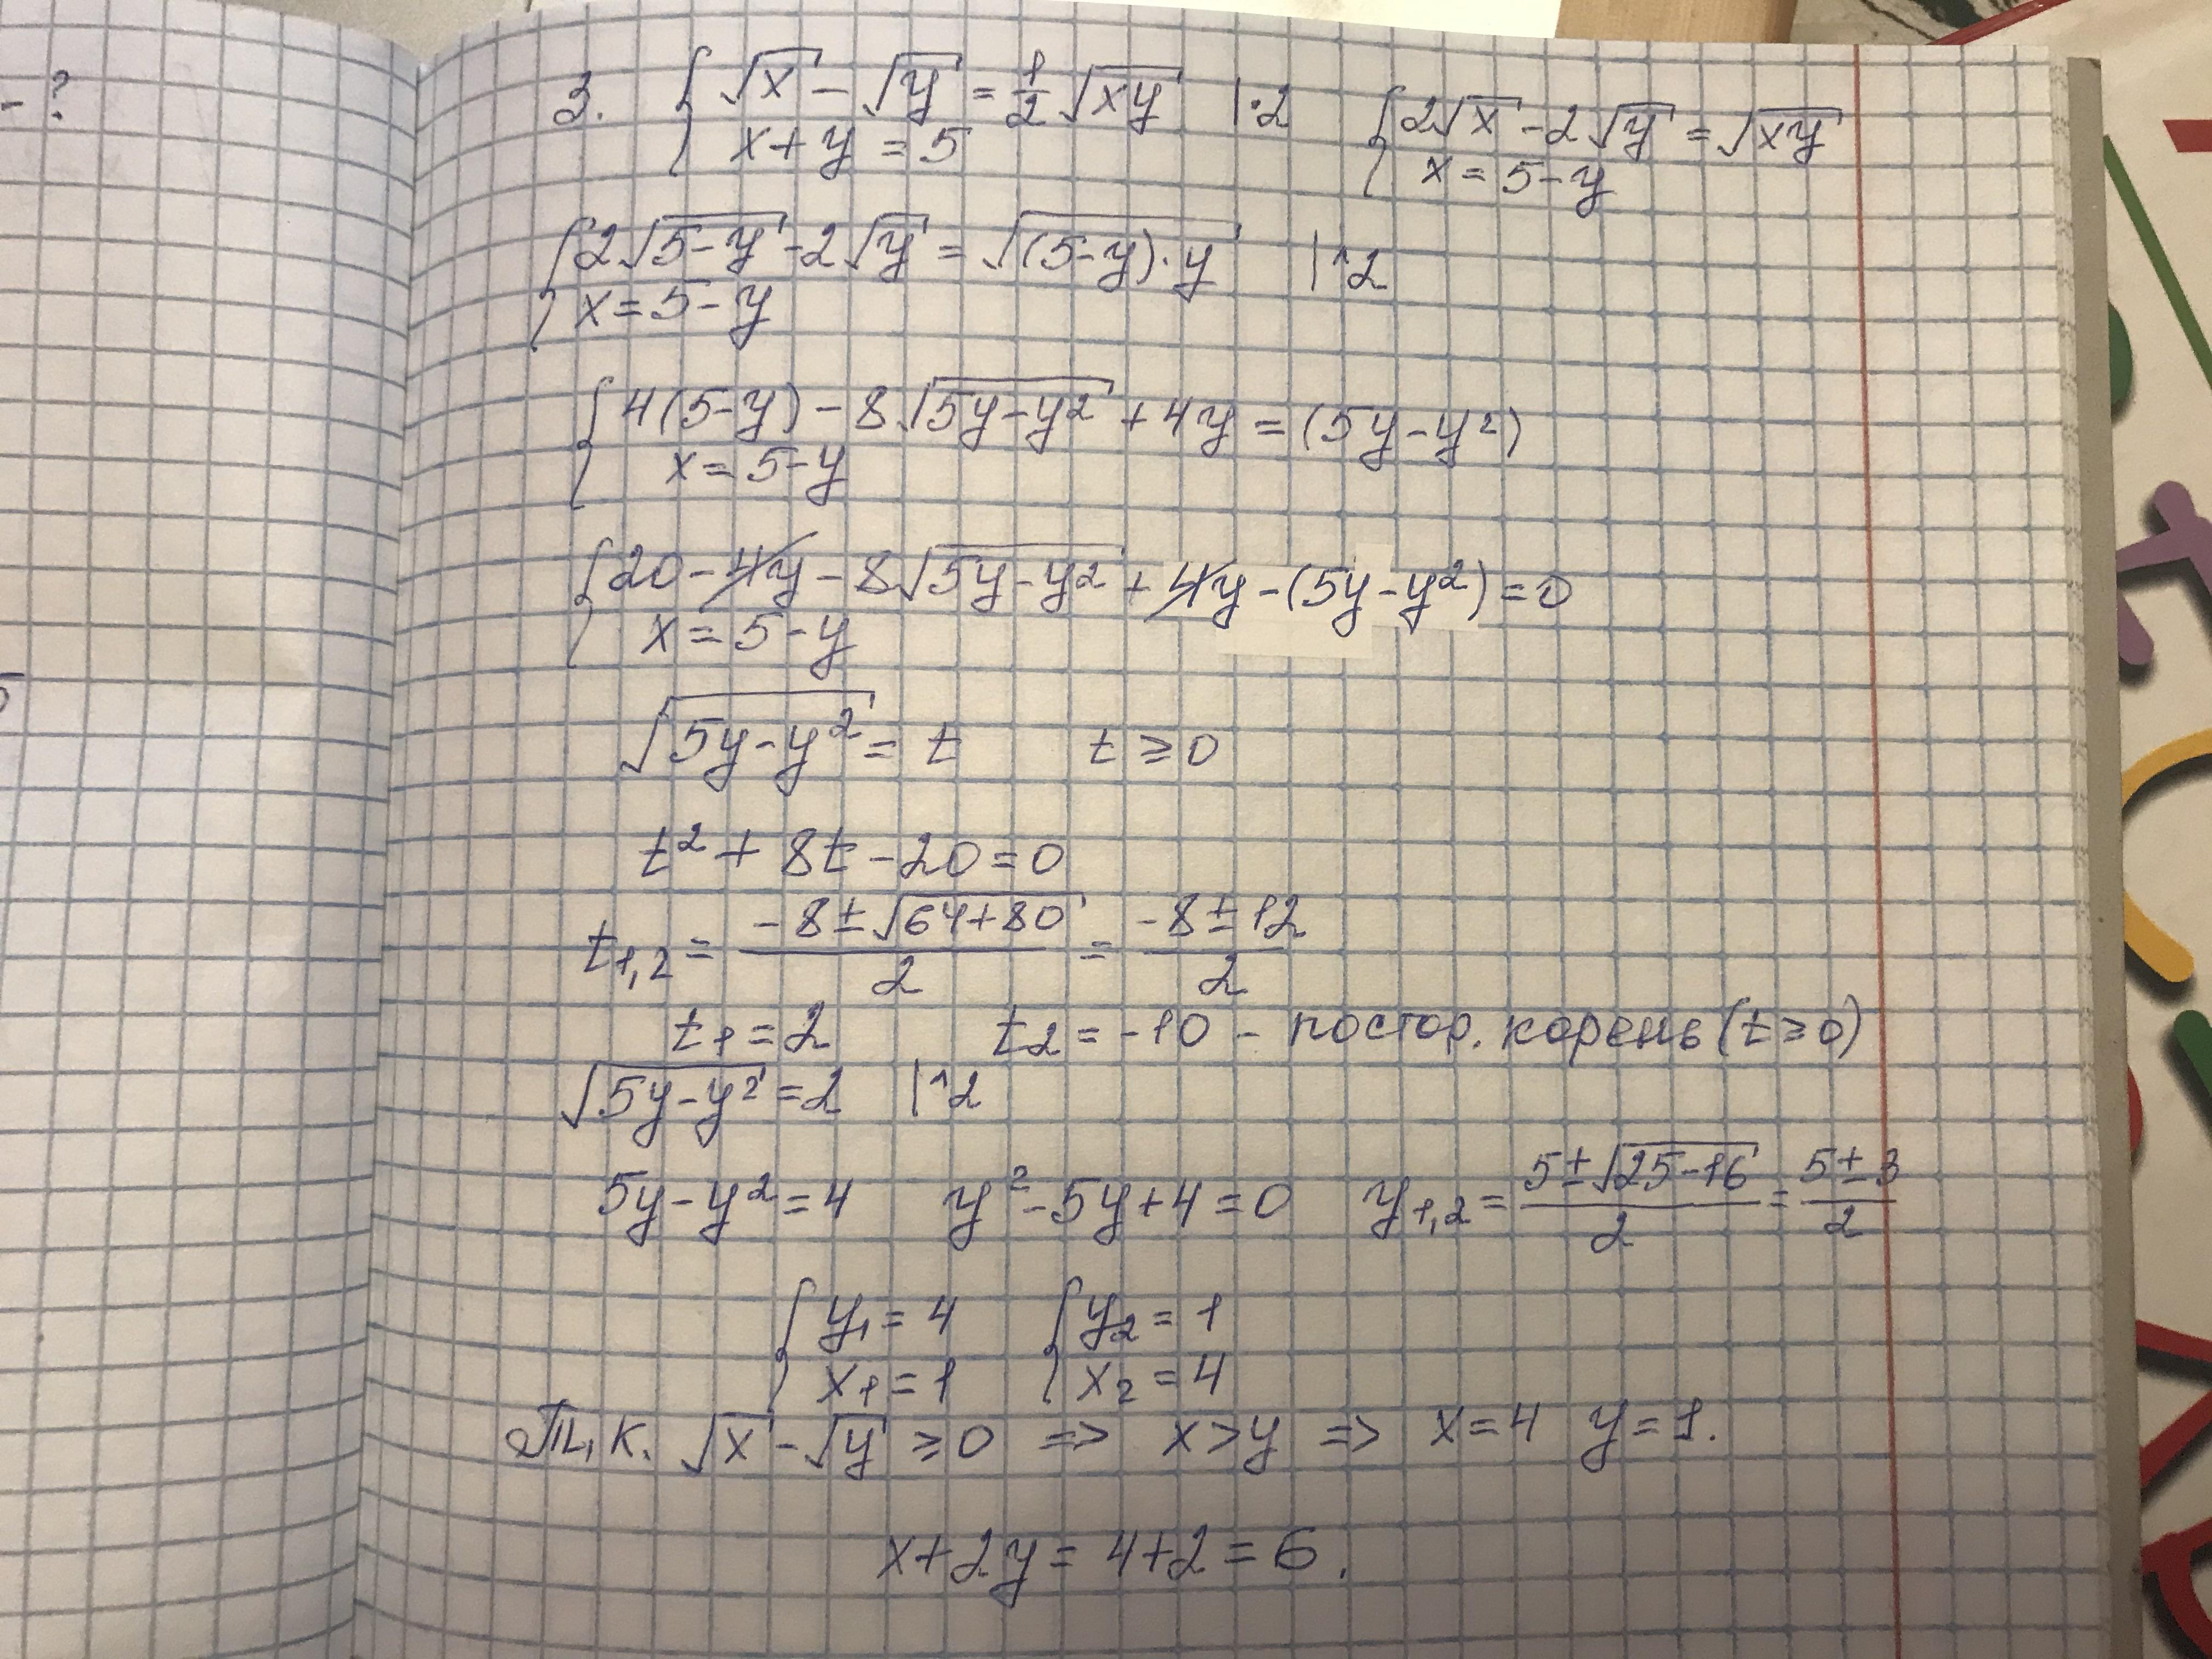 - ?
5
3. { √x - √y = 1/2 √xy |·2 { 2√x - 2√y = √xy
x + y = 5 x = 5 - y
{ 2√5-y - 2√y = √(5-y)·y |^2
x = 5 - y
{ 4(5-y) - 8√5y-y² + 4y = (5y-y²)
x = 5 - y
{ 20 - 4y - 8√5y-y² + 4y - (5y-y²) = 0
x = 5 - y
√5y-y² = t t ≥ 0
t² + 8t - 20 = 0
t1,2 = -8±√64+80 / 2 = -8±12 / 2
t1 = 2 t2 = -10 - постор. корень (t ≥ 0)
√5y-y² = 2 |^2
5y - y² = 4 y² - 5y + 4 = 0 y1,2 = 5±√25-16 / 2 = 5±3 / 2
{ y1 = 4 { y2 = 1
x1 = 1 x2 = 4
Т.к. √x - √y ≥ 0 => x > y => x = 4 y = 1.
x + 2y = 4 + 2 = 6.